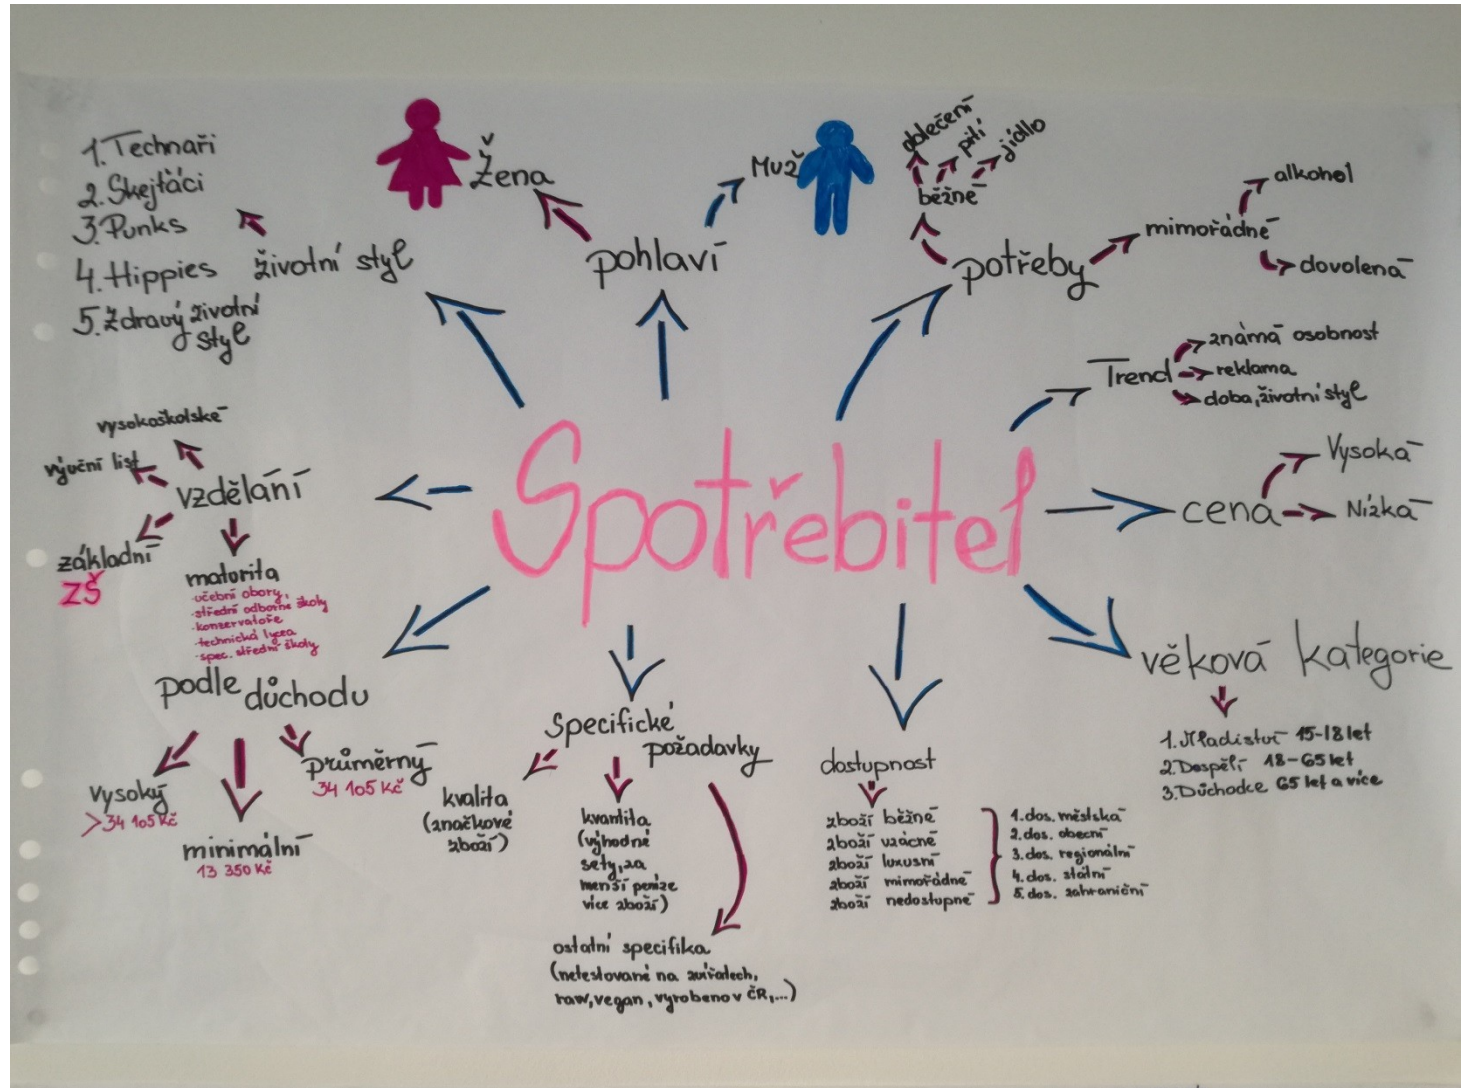 Spotřebitel
životní styl
1. Technaři
2. Skejťáci
3. Punks
4. Hippies
5. Zdravý životní
styl
pohlaví
Žena
Muž
potřeby
běžné
oblečení
pití
jídlo
mimořádné
alkohol
dovolená
Trend
známá osobnost
reklama
doba, životní styl
cena
Vysoká
Nízká
věková kategorie
1. Mladiství 15-18 let
2. Dospělí 18-65 let
3. Důchodce 65 let a více
dostupnost
zboží běžné
zboží vzácné
zboží luxusní
zboží mimořádné
zboží nedostupné
1. dos. městská
2. dos. obecní
3. dos. regionální
4. dos. státní
5. dos. zahraniční
Specifické
požadavky
kvalita
(značkové
zboží)
kvantita
(výhodné
sety, za
menší peníze
více zboží)
ostatní specifika
(netestované na zvířatech,
raw, vegan, vyrobeno v ČR,...)
podle důchodu
Vysoký
>34 105 Kč
minimální
13 350 Kč
průměrný
34 105 Kč
vzdělání
vysokoškolské
výuční list
základní
ZŠ
maturita
·učební obory,
·střední odborné školy
·konzervatoře
·technická lycea
·spec. střední školy